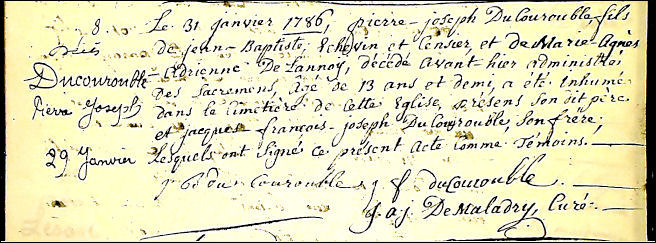 8.
Décès
Ducourouble
Pierre Joseph
29 Janvier
Le 31 janvier 1786, pierre-joseph DuCourouble fils
de jean-Baptiste, Echevin et Censier, et de Marie-Agnès
Adrienne De Lannoy, décédé avant-hier administré
des sacremens, âgé de 13 ans et demi, a été Inhumé
dans le cimetière de cette Eglise, presens son dit père
et jacques-françois-joseph DuCourouble, son frère;
lesquels ont signés ce present Acte comme Témoins.
j bte du Courouble j f duCourouble
j. a. j. DeMaladry, Curé.